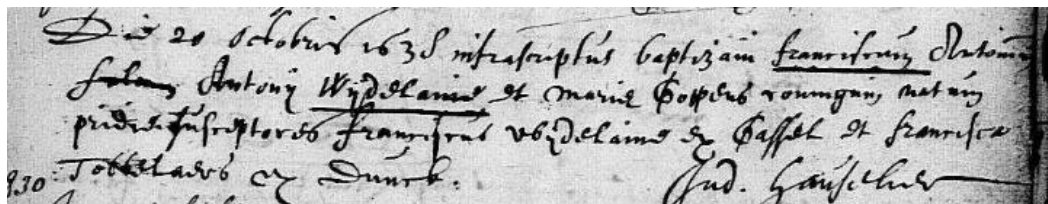 Die 20 Octobris 1638 infrascriptus baptizavi franciscum Antonium
filium Antonij Wijdelaine et Mariæ Coppens coniugum natum
pridie susceptores franciscus Wijdelaine ex Cassel et francisca
930 Tobbelaers ex Dunck. Jud. Hauselier